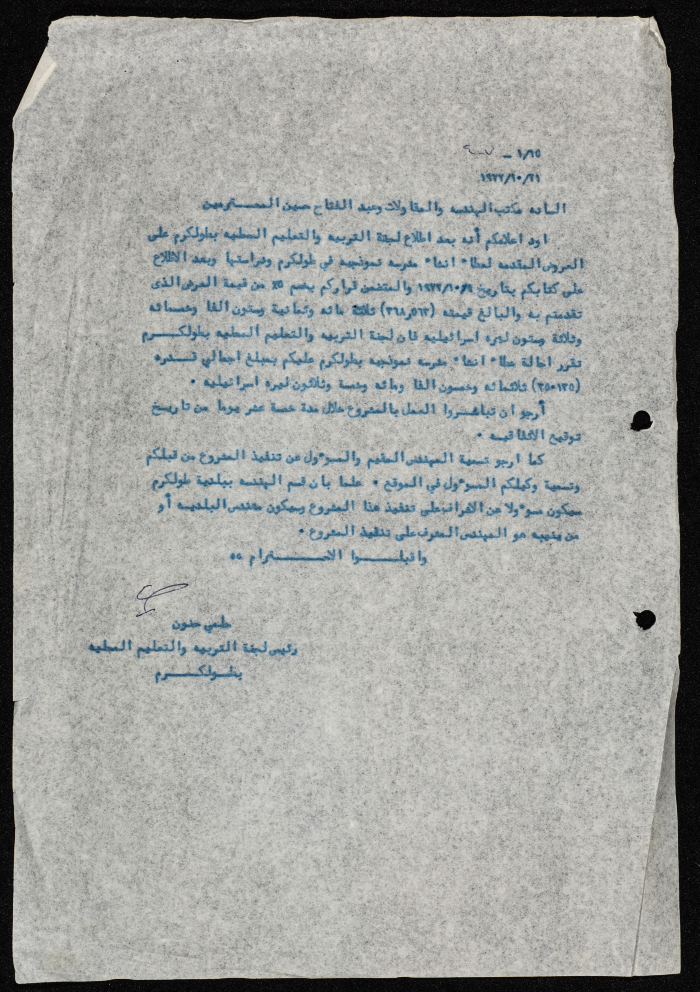 ١/٦٥ ــ
١٩٧٧/١٠/٢١
الساده مكتب الهندسه والمقاولات وعبد الفتاح حسين المحـــترمين
اود اعلامكم أنه بعد اطلاع لجنة التربيه والتعليم المحليه بطولكرم على
العروض المقدمه لعطا* انشا* مدرسه نموذجيه في طولكرم ودراستها وبعد الاطلاع
على كتابكم بتاريخ والمتضمن قراركم بخصم من قيمة العرض الذى
تقدمتم به والبالغ قيمته (٣٦٨٫٥٦٣) ثلاثة مائه وثمانية وستون الفا وخمسمائه
وثلاثة وستون ليره اسرائيليه فان لجنة التربيه والتعليم المحليه بطولكـــرم
تقرر احالة عطا* انشا* مدرسه نموذجيه بطولكرم عليكم بمبلغ اجمالي قـــدره
(٣٥٠١٣٥) ثلاثمائه وخمسون الفا ومائه وخمسة وثلاثون ليره اسرائيليه ٠
أرجو ان تباشـروا العمل بالمشروع خلال مدة خمسة عشر يوما من تاريـخ
توقيع الاتفاقيـه ٠
كما ارجو تسمية المهندس المقيم والمسو*ول عن تنفيذ المشروع من قبلكم
وتسمية وكيلكم المسو*ول في الموقع ٠ علما بان قسم الهندسه ببلدية طولكرم
سيكون مسو*ولا عن الاشراف على تنفيذ هذا المشروع وسيكون مهندس البلديـه أو
من ينيبه هو المهندس المشرف على تنفيذ المشروع ٠
واقبلـــــوا الاحـــــترام ٥٥
حلمي حنون
رئيس لجنة التربيه والتعليم المحليه
بطـولكـــــرم